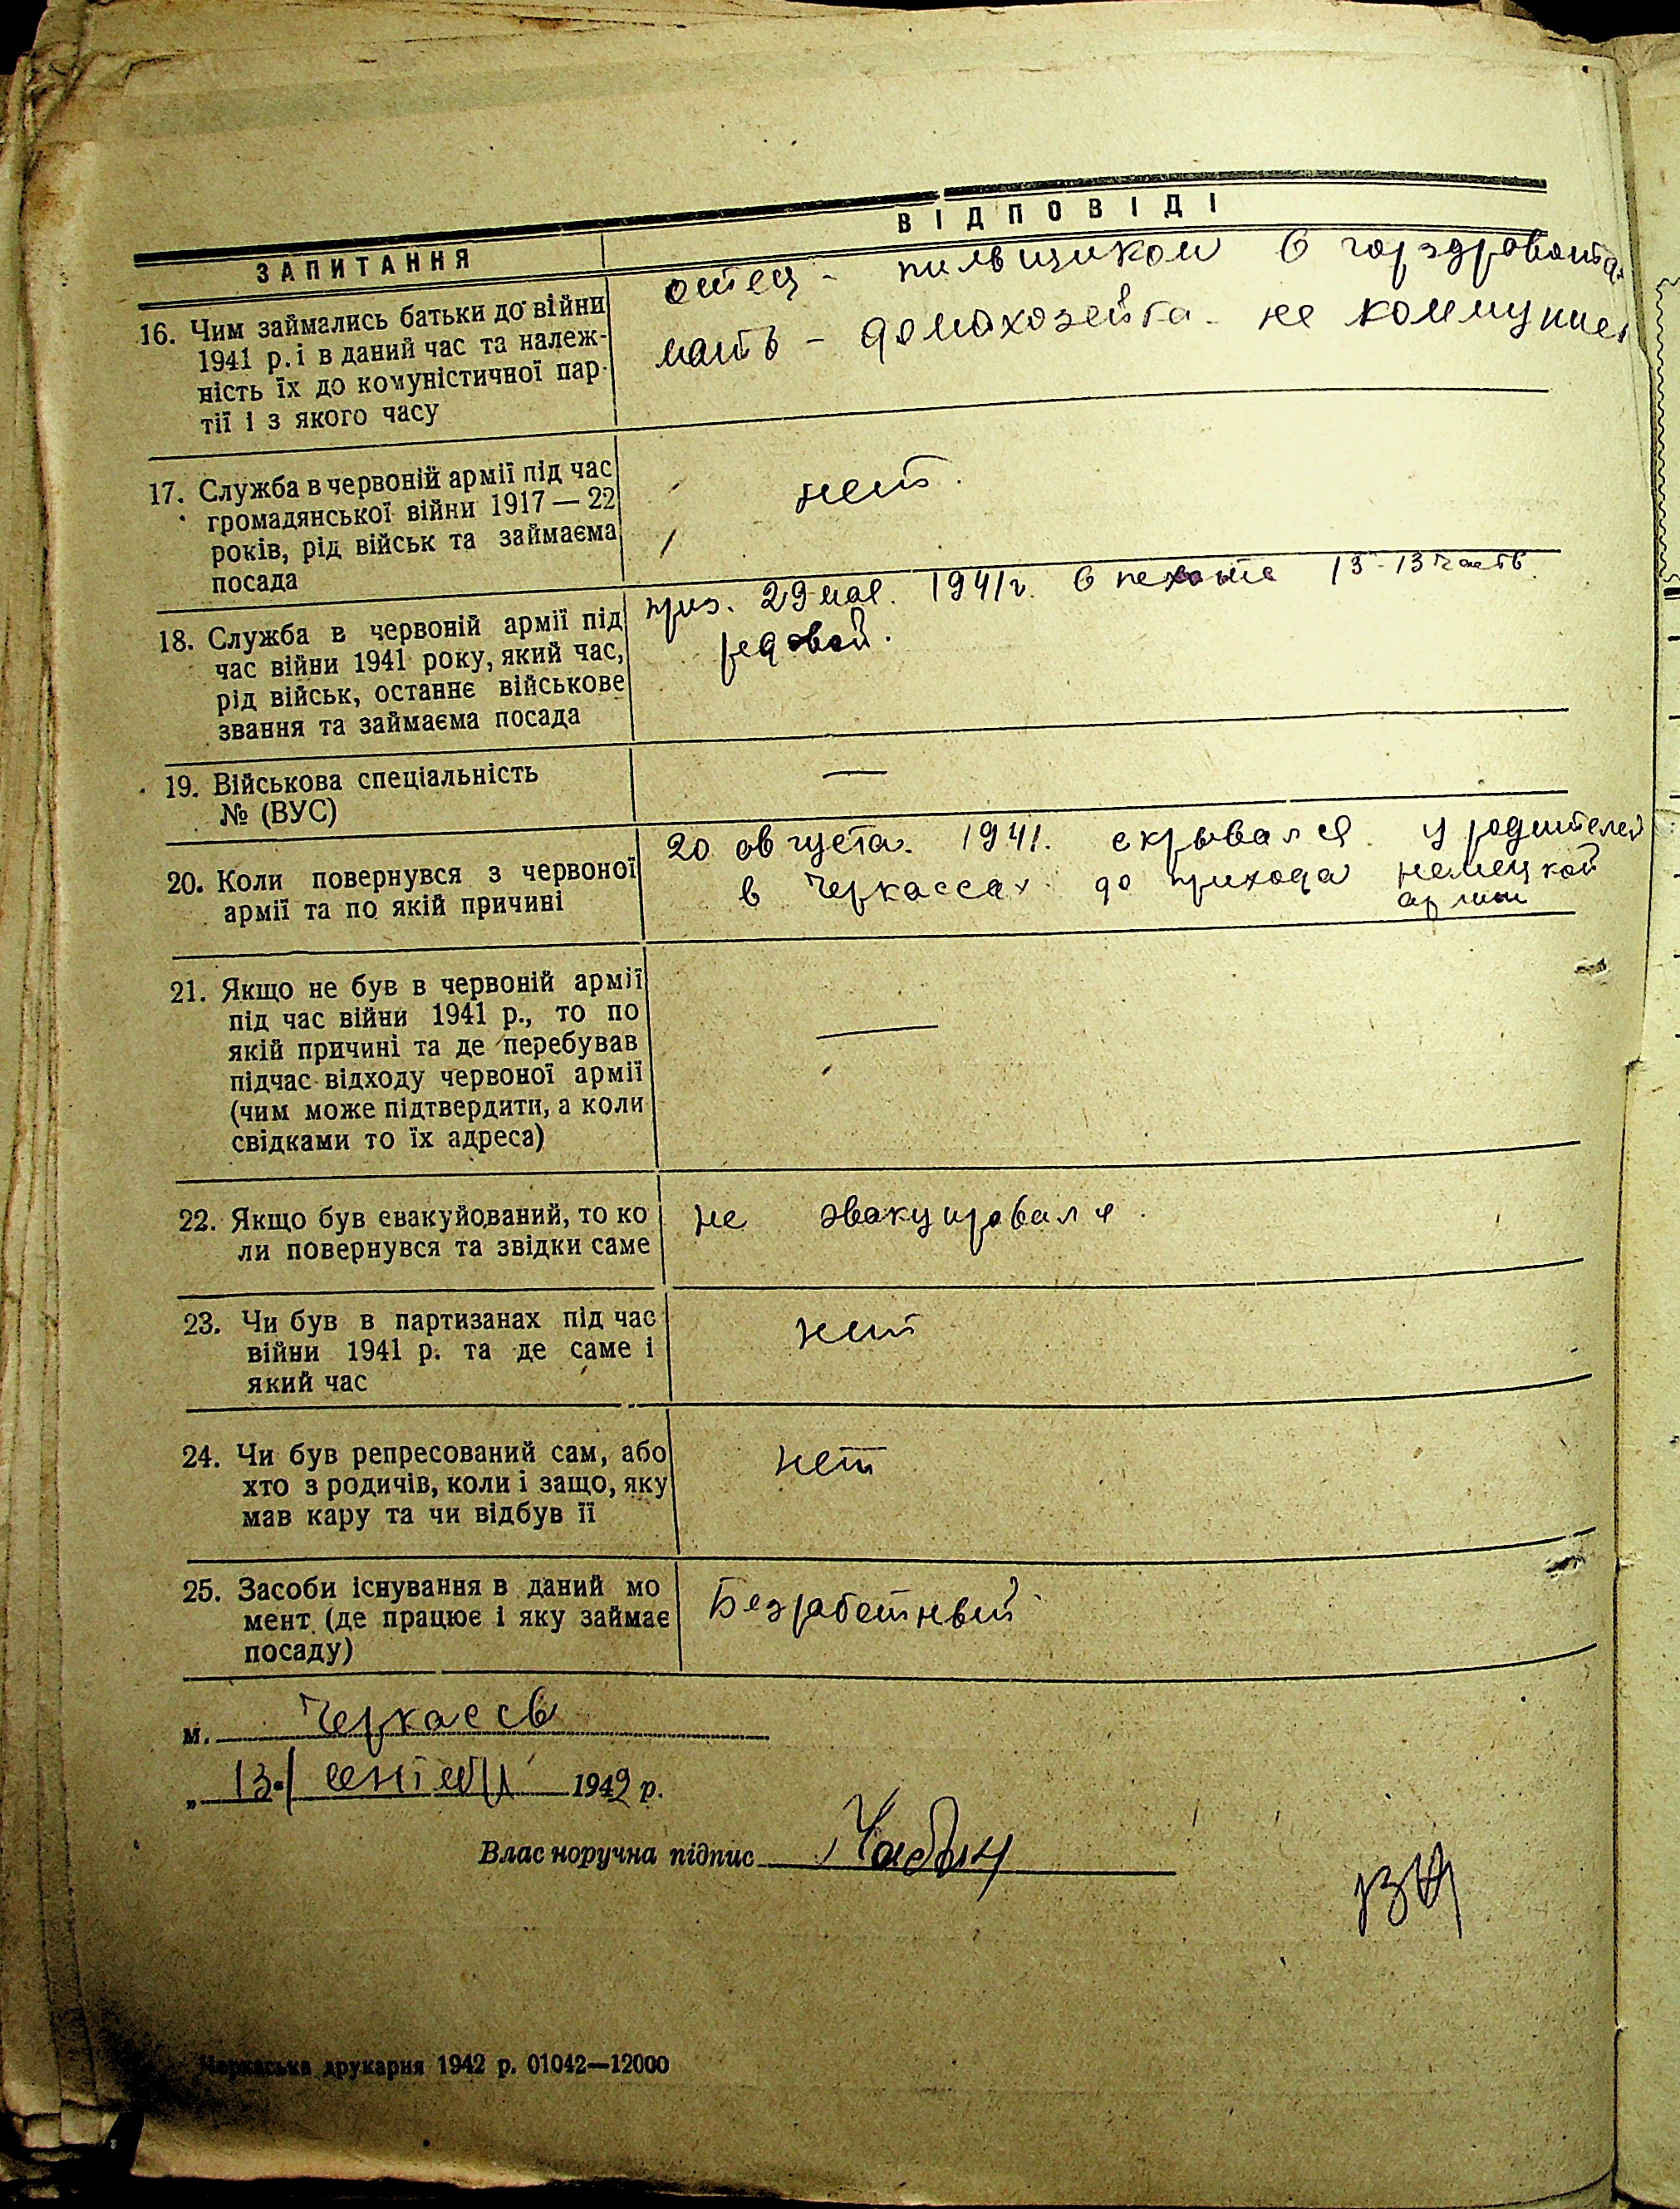 ЗАПИТАННЯ
ВІДПОВІДІ
16. Чим займались батьки до війни
1941 р. і в даний час та належ-
ність їх до комуністичної пар-
тії і з якого часу
отец - пильщиком в горздравотд
мать - домохозейка не коммунист
17. Служба в червоній армії під час
громадянської війни 1917 — 22
років, рід військ та займаєма
посада
нет.
18. Служба в червоній армії під
час війни 1941 року, який час,
рід військ, останнє військове
звання та займаєма посада
1941г. в пехоте 13-13 часть
редовой.
19. Військова спеціальність
№ (ВУС)
—
20. Коли повернувся з червоної
армії та по якій причині
20 августа. 1941. скрывался у родителей
в Черкассах до прихода немецкой
армии
21. Якщо не був в червоній армії
під час війни 1941 р., то по
якій причині та де перебував
підчас відходу червоної армії
(чим може підтвердити, а коли
свідками то їх адреса)
—
22. Якщо був евакуйований, то ко
ли повернувся та звідки саме
не эвакуировался.
23. Чи був в партизанах під час
війни 1941 р. та де саме і
який час
нет
24. Чи був репресований сам, або
хто з родичів, коли і защо, яку
мав кару та чи відбув її
нет
25. Засоби існування в даний мо
мент (де працює і яку займає
посаду)
Безработный
м. Черкассы
„ 13. 1942 р.
Власноручна підпис
Черкаська друкарня 1942 р. 01042—12000